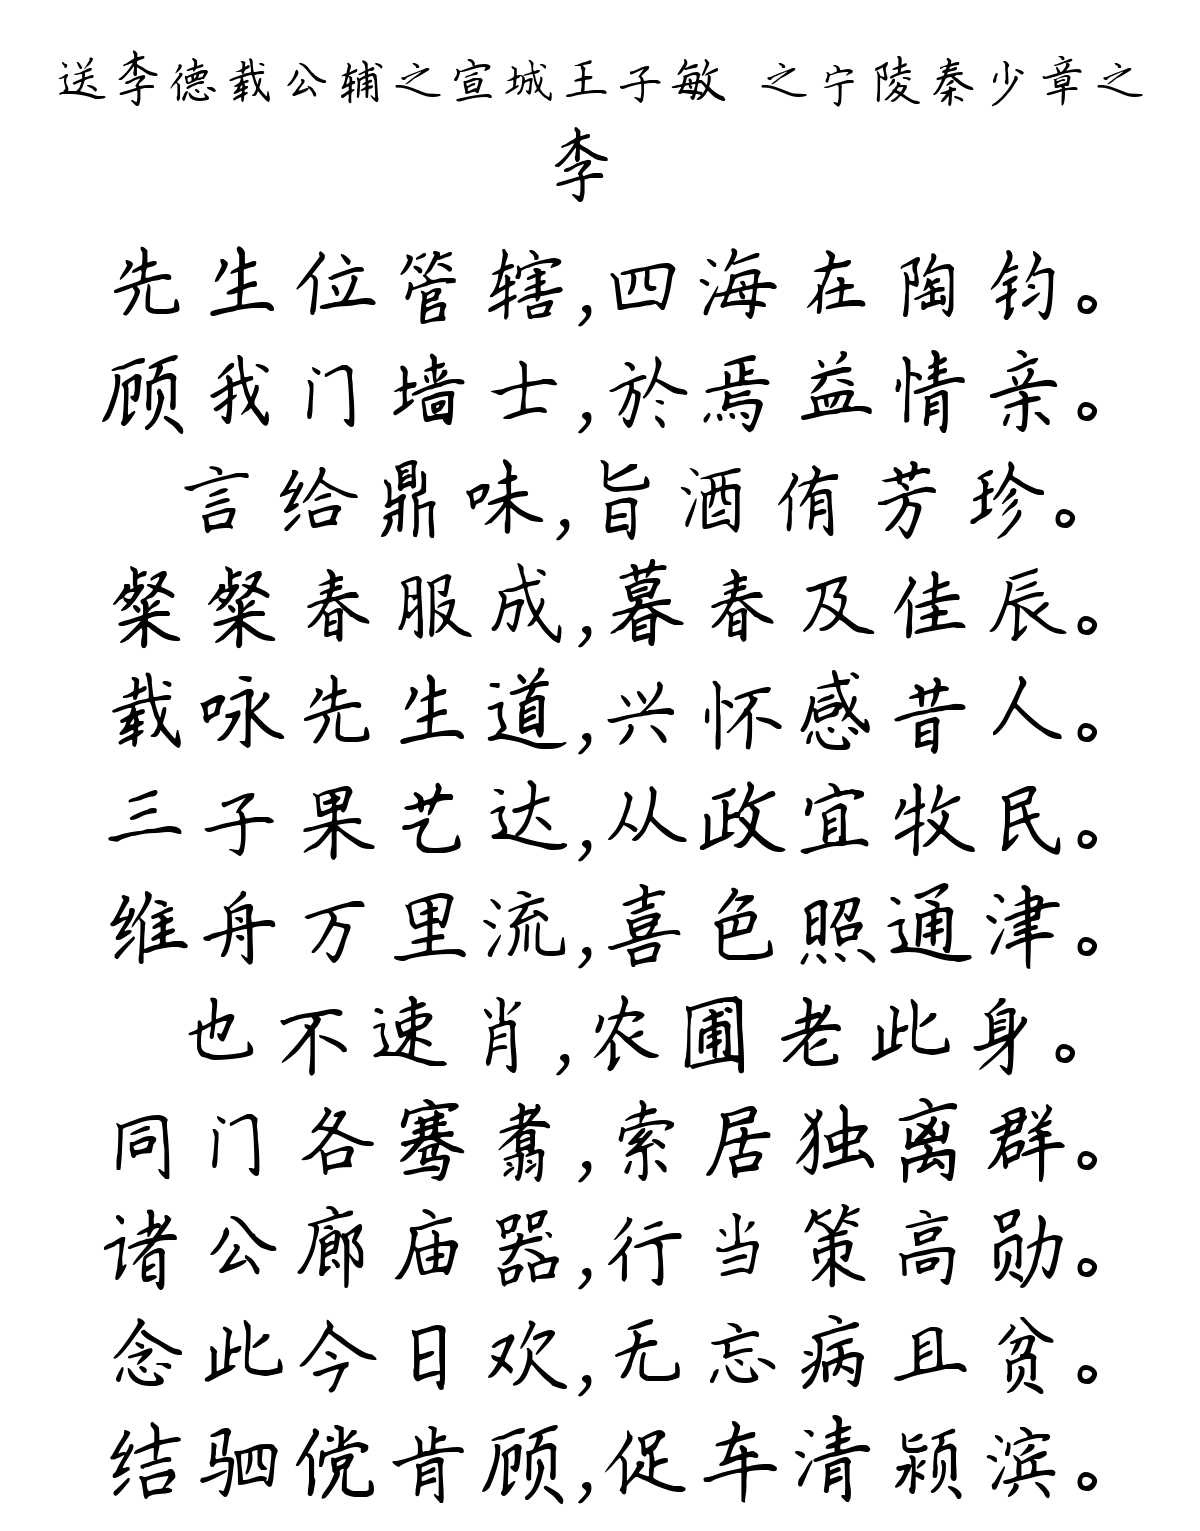 送李德载公辅之宣城王子敏 之宁陵秦少章之
李
先生位管辖,四海在陶钧。
顾我门墙士,於焉益情亲。
言给鼎味,旨酒侑芳珍。
粲粲春服成,暮春及佳辰。
载咏先生道,兴怀感昔人。
三子果艺达,从政宜牧民。
维舟万里流,喜色照通津。
也不速肖,农圃老此身。
同门各骞翥,索居独离群。
诸公廊庙器,行当策高勋。
念此今日欢,无忘病且贫。
结驷傥肯顾,促车清颍滨。